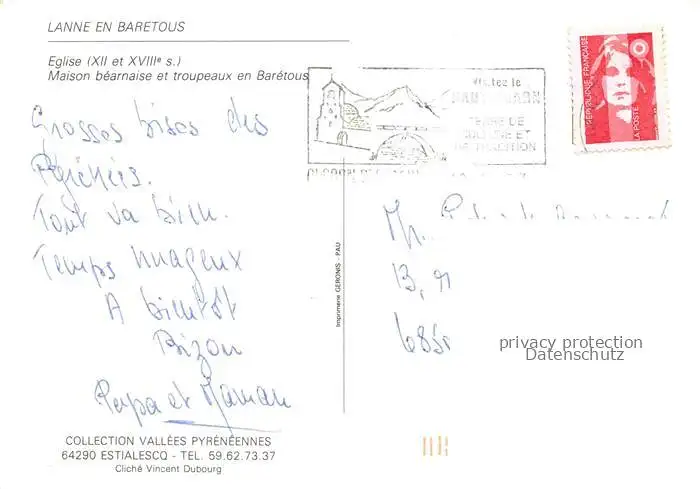 LANNE EN BARETOUS
Eglise (XII et XVIIIe s.)
Maison béarnaise et troupeaux en Barétous
Grosses bises des
Pyrénées.
Tout va bien.
Temps nuageux
A bientôt
Bizou
Papa et Maman
COLLECTION VALLÉES PYRÉNÉENNES
64290 ESTIALESCQ - TEL. 59.62.73.37
Cliché Vincent Dubourg
Imprimerie GERONIS - PAU
Visitez le
TERRE DE
ET
TRADITION
REPUBLIQUE FRANÇAISE
LA POSTE
M.
13,
privacy protection
Datenschutz